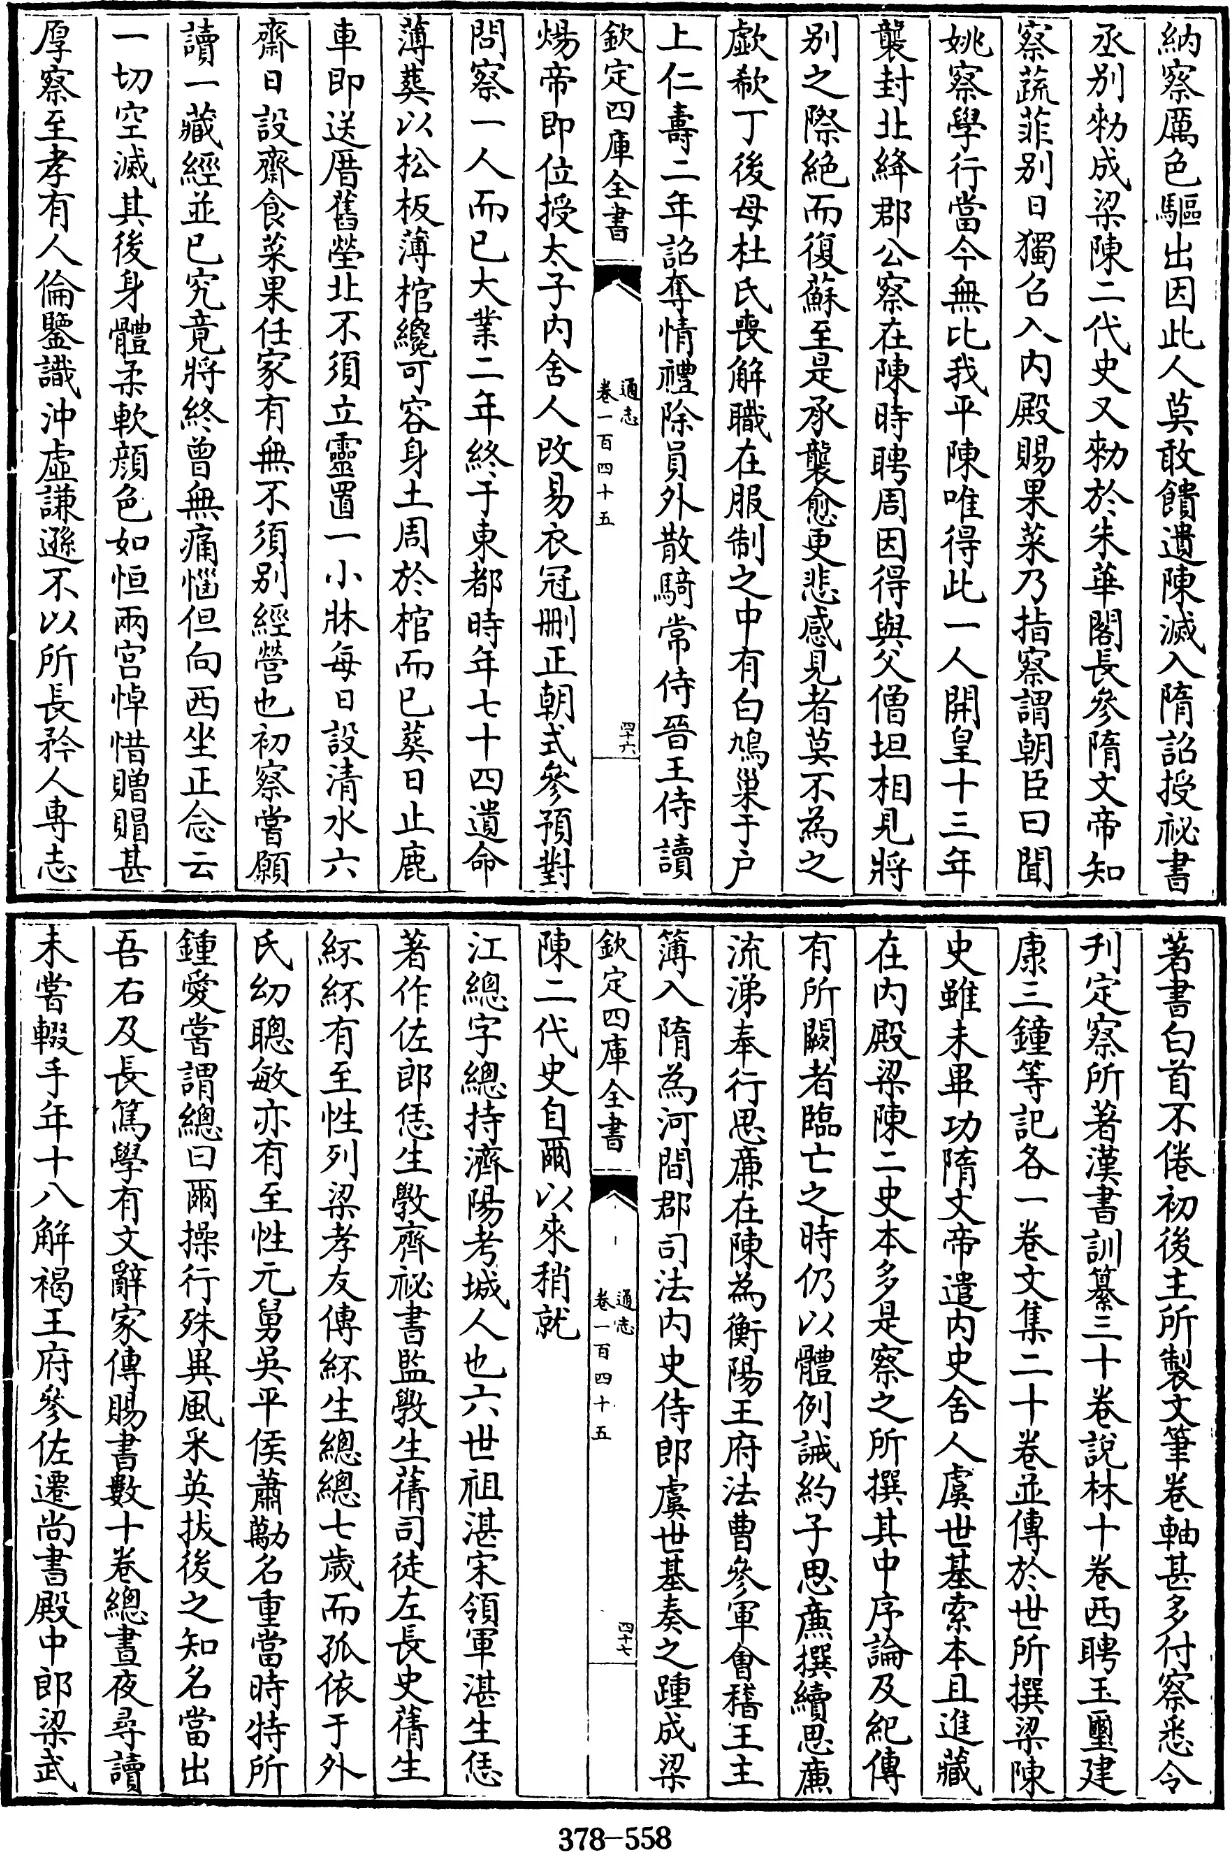 納察厲色驅出因此人莫敢饋遺陳滅入隋詔授祕書
丞别勑成梁陳二代史又勑於朱華閣長參隋文帝知
察蔬菲别日獨召入内殿賜果菜乃指察謂朝臣曰聞
姚察學行當今無比我平陳唯得此一人開皇十三年
襲封北絳郡公察在陳時聘周因得與父僧坦相見將
别之際絶而復蘇至是承襲愈更悲感見者莫不為之
歔欷丁後母杜氏喪解職在服制之中有白鳩巢于户
上仁壽二年詔奪情禮除員外散騎常侍晉王侍讀
欽定四庫全書
通志
卷一百四十五
四十六
煬帝即位授太子内舍人改易衣冠删正朝式參預對
問察一人而已大業二年終于東都時年七十四遺命
薄葬以松板薄棺纔可容身土周於棺而已葬日止鹿
車即送厝舊塋北不須立靈置一小牀每日設清水六
齋日設齋食菜果任家有無不須别經營也初察嘗願
讀一藏經並已究竟將終曾無痛惱但向西坐正念云
一切空滅其後身體柔軟顔色如恒兩宫悼惜贈賵甚
厚察至孝有人倫鑒識沖虚謙遜不以所長矜人專志
著書白首不倦初後主所製文筆卷軸甚多付察悉令
刋定察所著漢書訓纂三十卷說林十卷西聘玉璽建
康三鐘等記各一卷文集二十卷並傳於世所撰梁陳
史雖未畢功隋文帝遣内史舍人虞世基索本且進藏
在内殿梁陳二史本多是察之所撰其中序論及紀傳
有所闕者臨亡之時仍以體例誡約子思廉撰續思廉
流涕奉行思廉在陳為衡陽王府法曹參軍會稽王主
簿入隋為河間郡司法内史侍郎虞世基奏之踵成梁
陳二代史自爾以來稍就
欽定四庫全書
通志
卷一百四十五
四十七
江總字總持濟陽考城人也六世祖湛宋領軍湛生恁
著作佐郎恁生斆齊祕書監斆生蒨司徒左長史蒨生
紑紑有至性列梁孝友傳紑生總總七歲而孤依于外
氏幼聰敏亦有至性元舅吳平侯蕭勱名重當時特所
鍾愛嘗謂總曰爾操行殊異風采英拔後之知名當出
吾右及長篤學有文辭家傳賜書數十卷總晝夜尋讀
未嘗輟手年十八解褐王府參佐遷尚書殿中郎梁武
378-558